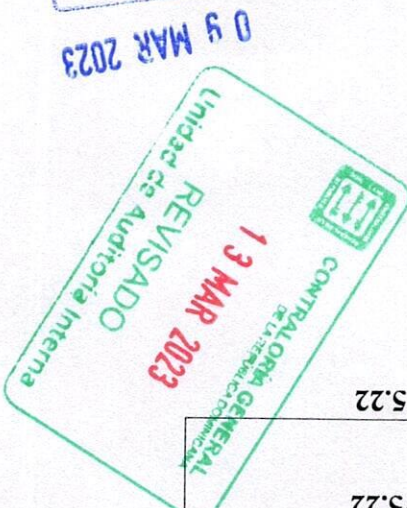 09 MAR 2023
CONTRALORÍA GENERAL
DE LA REPÚBLICA DOMINICANA
13 MAR 2023
REVISADO
Unidad de Auditoría Interna
5.22
5.22